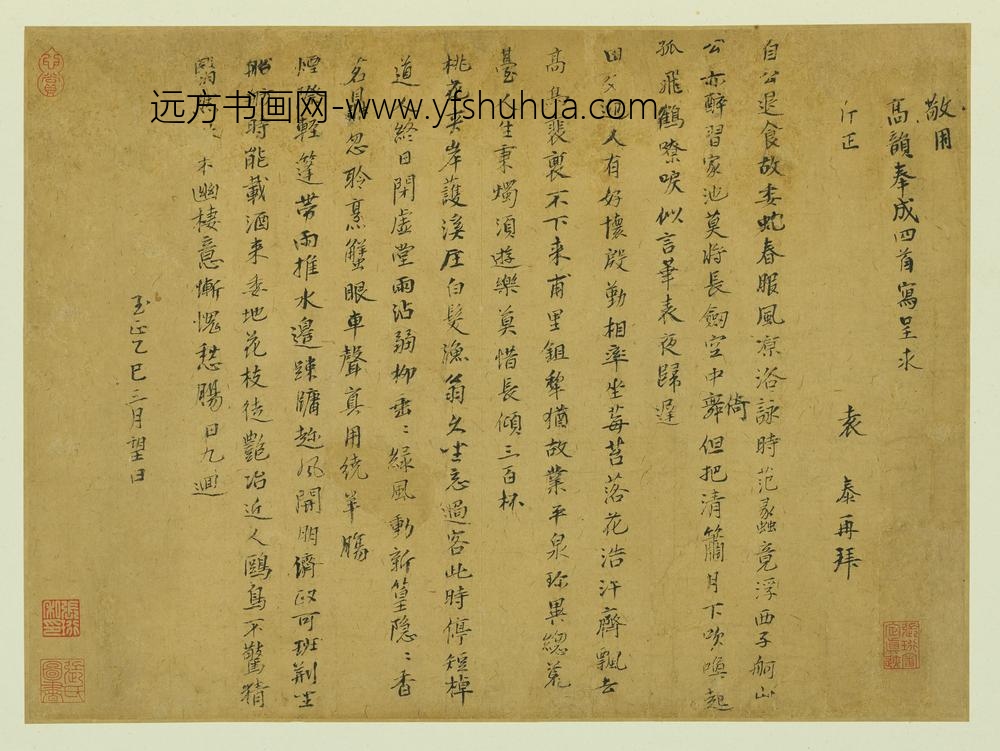 敬用
高韻奉成四首寫呈求
斤正
袁 泰再拜
自公退食故委蛇春服風凉浴詠時范蠡竟浮西子舸山
公亦醉習家池莫将長劔空中舞倚但把清簫月下吹喚起
孤飛鶴嘹唳似言華表夜歸遲
田父 人有好懷殷勤相率坐莓苔落花浩汗齊飄去
高鳥裴裏不下来甫里鉏犁猶故業平泉珎異總荒
臺人生秉燭須遊樂莫惜長傾三百杯
桃花夾岸護溪圧白髮漁翁久坐忘過客此時停短棹
道人終日閉虚堂雨沾弱柳垂〻緑風動新篁隐〻香
茗鼎忽聆烹蟹眼車聲真用繞羊腸
煙 輕篷帶雨推水邉踈牖趂風開朋儕政可班荆坐
船 時能載酒来委地花枝徒艷冶近人鷗鳥不驚精
 木幽棲意慚愧愁腸日九迴
至正乙巳三月望日
远方书画网-www.yfshuhua.com